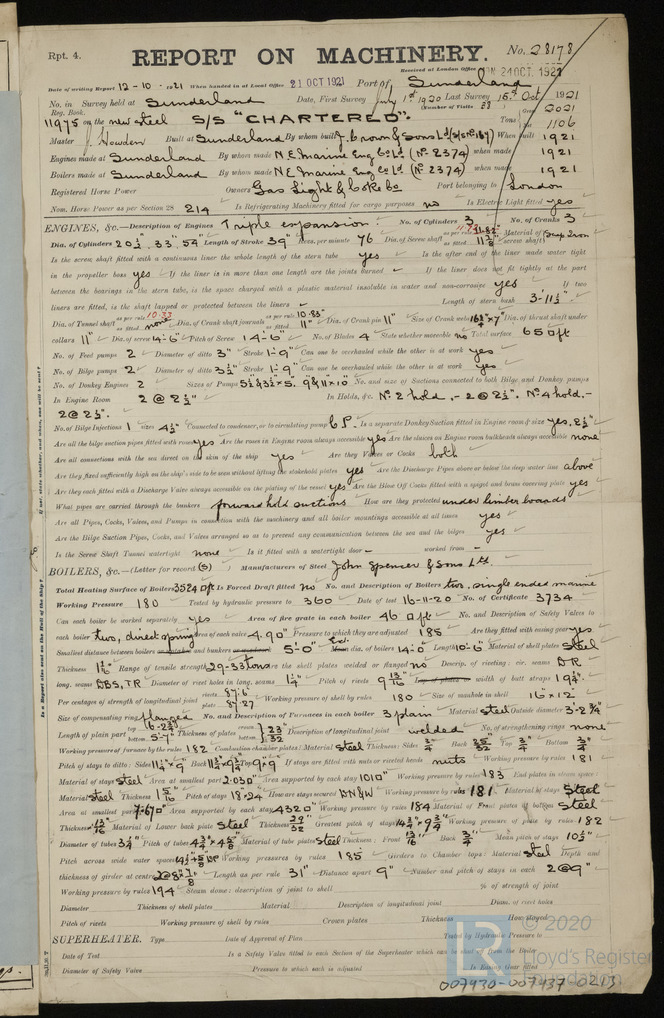 Rpt. 4. REPORT ON MACHINERY. No. 28178
Received at London Office 24 OCT. 1921
Date of writing Report 12-10-1921 When handed in at Local Office 21 OCT 1921 Port of Sunderland
No. in Survey held at Sunderland Date, First Survey July 1st 1920 Last Survey 15th Oct 1921
Reg. Book. (Number of Visits 58
11975 on the new steel S/S "CHARTERED". Tons Gross 2021 Net 1106
Master J. Howden Built at Sunderland By whom built J. Crown & Sons Ld (S/S No 187) When built 1921
Engines made at Sunderland By whom made N.E. Marine Eng Co Ld (No. 2374) when made 1921
Boilers made at Sunderland By whom made N.E. Marine Eng Co Ld (No. 2374) when made 1921
Registered Horse Power Owners Gas Light & Coke Co Port belonging to London
Nom. Horse Power as per Section 28 214 Is Refrigerating Machinery fitted for cargo purposes no Is Electric Light fitted yes
ENGINES, &c.—Description of Engines Triple expansion. No. of Cylinders 3 No. of Cranks 3
Dia. of Cylinders 20½", 33", 54" Length of Stroke 39" Revs. per minute 76 Dia. of Screw shaft as per rule 11.82" as fitted 11⅞" Material of screw shaft Scrap Iron
Is the screw shaft fitted with a continuous liner the whole length of the stern tube yes Is the after end of the liner made water tight
in the propeller boss yes If the liner is in more than one length are the joints burned - If the liner does not fit tightly at the part
between the bearings in the stern tube, is the space charged with a plastic material insoluble in water and non-corrosive yes If two
liners are fitted, is the shaft lapped or protected between the liners - Length of stern bush 3'-11½"
Dia. of Tunnel shaft as per rule 10.33 as fitted none Dia. of Crank shaft journals as per rule 10.85" as fitted 11" Dia. of Crank pin 11" Size of Crank webs 16¾" x 7" Dia. of thrust shaft under
collars 11" Dia. of screw 14'-6" Pitch of Screw 14'-6" No. of Blades 4 State whether moveable no Total surface 65 □ft
No. of Feed pumps 2 Diameter of ditto 3" Stroke 1'-9" Can one be overhauled while the other is at work yes
No. of Bilge pumps 2 Diameter of ditto 3½" Stroke 1'-9" Can one be overhauled while the other is at work yes
No. of Donkey Engines 2 Sizes of Pumps 5½" & 3½" x 5". 9" & 11" x 10" No. and size of Suctions connected to both Bilge and Donkey pumps
In Engine Room 2 @ 2½" In Holds, &c. No 2 hold, - 2 @ 2½". No 4 hold.-
2 @ 2½".
No. of Bilge Injections 1 sizes 4½" Connected to condenser, or to circulating pump C.P. Is a separate Donkey Suction fitted in Engine room & size yes, 2½"
Are all the bilge suction pipes fitted with roses yes Are the roses in Engine room always accessible yes Are the sluices on Engine room bulkheads always accessible none
Are all connections with the sea direct on the skin of the ship yes Are they Valves or Cocks both
Are they fixed sufficiently high on the ship's side to be seen without lifting the stokehold plates yes Are the Discharge Pipes above or below the deep water line above
Are they each fitted with a Discharge Valve always accessible on the plating of the vessel yes Are the Blow Off Cocks fitted with a spigot and brass covering plate yes
What pipes are carried through the bunkers forward hold suctions How are they protected under limber boards
Are all Pipes, Cocks, Valves, and Pumps in connection with the machinery and all boiler mountings accessible at all times yes
Are the Bilge Suction Pipes, Cocks, and Valves arranged so as to prevent any communication between the sea and the bilges yes
Is the Screw Shaft Tunnel watertight none Is it fitted with a watertight door - worked from -
BOILERS, &c.—(Letter for record (S)) Manufacturers of Steel John Spencer & Sons Ltd.
Total Heating Surface of Boilers 3524 □ft Is Forced Draft fitted no No. and Description of Boilers two, single ended marine
Working Pressure 180 Tested by hydraulic pressure to 360 Date of test 16-11-20 No. of Certificate 3734
Can each boiler be worked separately yes Area of fire grate in each boiler 46 □ft No. and Description of Safety Valves to
each boiler two, direct spring Area of each valve 4.90" Pressure to which they are adjusted 185 Are they fitted with easing gear yes
Smallest distance between boilers or uptakes and bunkers or woodwork 5'-0" dia. of boilers 14'-0" Length 10'-6" Material of shell plates steel
Thickness 1 1/16" Range of tensile strength 29-33 tons Are the shell plates welded or flanged no Descrip. of riveting: cir. seams DR
long. seams DBS, TR Diameter of rivet holes in long. seams 1¼" Pitch of rivets 9 13/16 width of butt straps 19¾".
Per centages of strength of longitudinal joint rivets 87.6 plate 87.27 Working pressure of shell by rules 180 Size of manhole in shell 16" x 12"
Size of compensating ring flanged No. and Description of Furnaces in each boiler 3 plain Material steel Outside diameter 3'-2¾"
Length of plain part top 6'-2 bottom 5'-7 Thickness of plates crown bottom 23/32 Description of longitudinal joint welded No. of strengthening rings none
Working pressure of furnace by the rules 182 Combustion chamber plates: Material steel Thickness: Sides ¾" Back 25/32 Top ¾" Bottom ¾"
Pitch of stays to ditto: Sides 11¼" x 9" Back Top 9" x 9" If stays are fitted with nuts or riveted heads nuts Working pressure by rules 181
Material of stays steel Area at smallest part 2.03□" Area supported by each stay 101□" Working pressure by rules 183 End plates in steam space:
Material steel Thickness 1 5/16 Pitch of stays 18" x 24" How are stays secured DN&W Working pressure by rules 181 Material of stays steel
Area at smallest part 7.67□" Area supported by each stay 432□" Working pressure by rules 184 Material of Front plates at bottom steel
Thickness 13/16" Material of Lower back plate steel Thickness 29/32 Greatest pitch of stays 14¾" x 9¾" Working pressure of plate by rules 182
Diameter of tubes 3¼" Pitch of tubes 4¾" x 4⅝" Material of tube plates steel Thickness: Front 13/16" Back ¾" Mean pitch of stays 10½"
Pitch across wide water spaces Working pressures by rules 185 Girders to Chamber tops: Material steel Depth and
thickness of girder at centre 2 @ 8" x ⅞ Length as per rule 31" Distance apart 9" Number and pitch of stays in each 2 @ 9"
Working pressure by rules 194 Steam dome: description of joint to shell % of strength of joint
Diameter Thickness of shell plates Material Description of longitudinal joint Diam. of rivet holes
Pitch of rivets Working pressure of shell by rules Crown plates Thickness How stayed
SUPERHEATER. Type Date of Approval of Plan Tested by Hydraulic Pressure to
Date of Test Is a Safety Valve fitted to each Section of the Superheater which can be shut off from the Boiler
Diameter of Safety Valve Pressure to which each is adjusted Is Easing Gear fitted
© 2020
Lloyd's Register
Foundation
007430-007437-0213